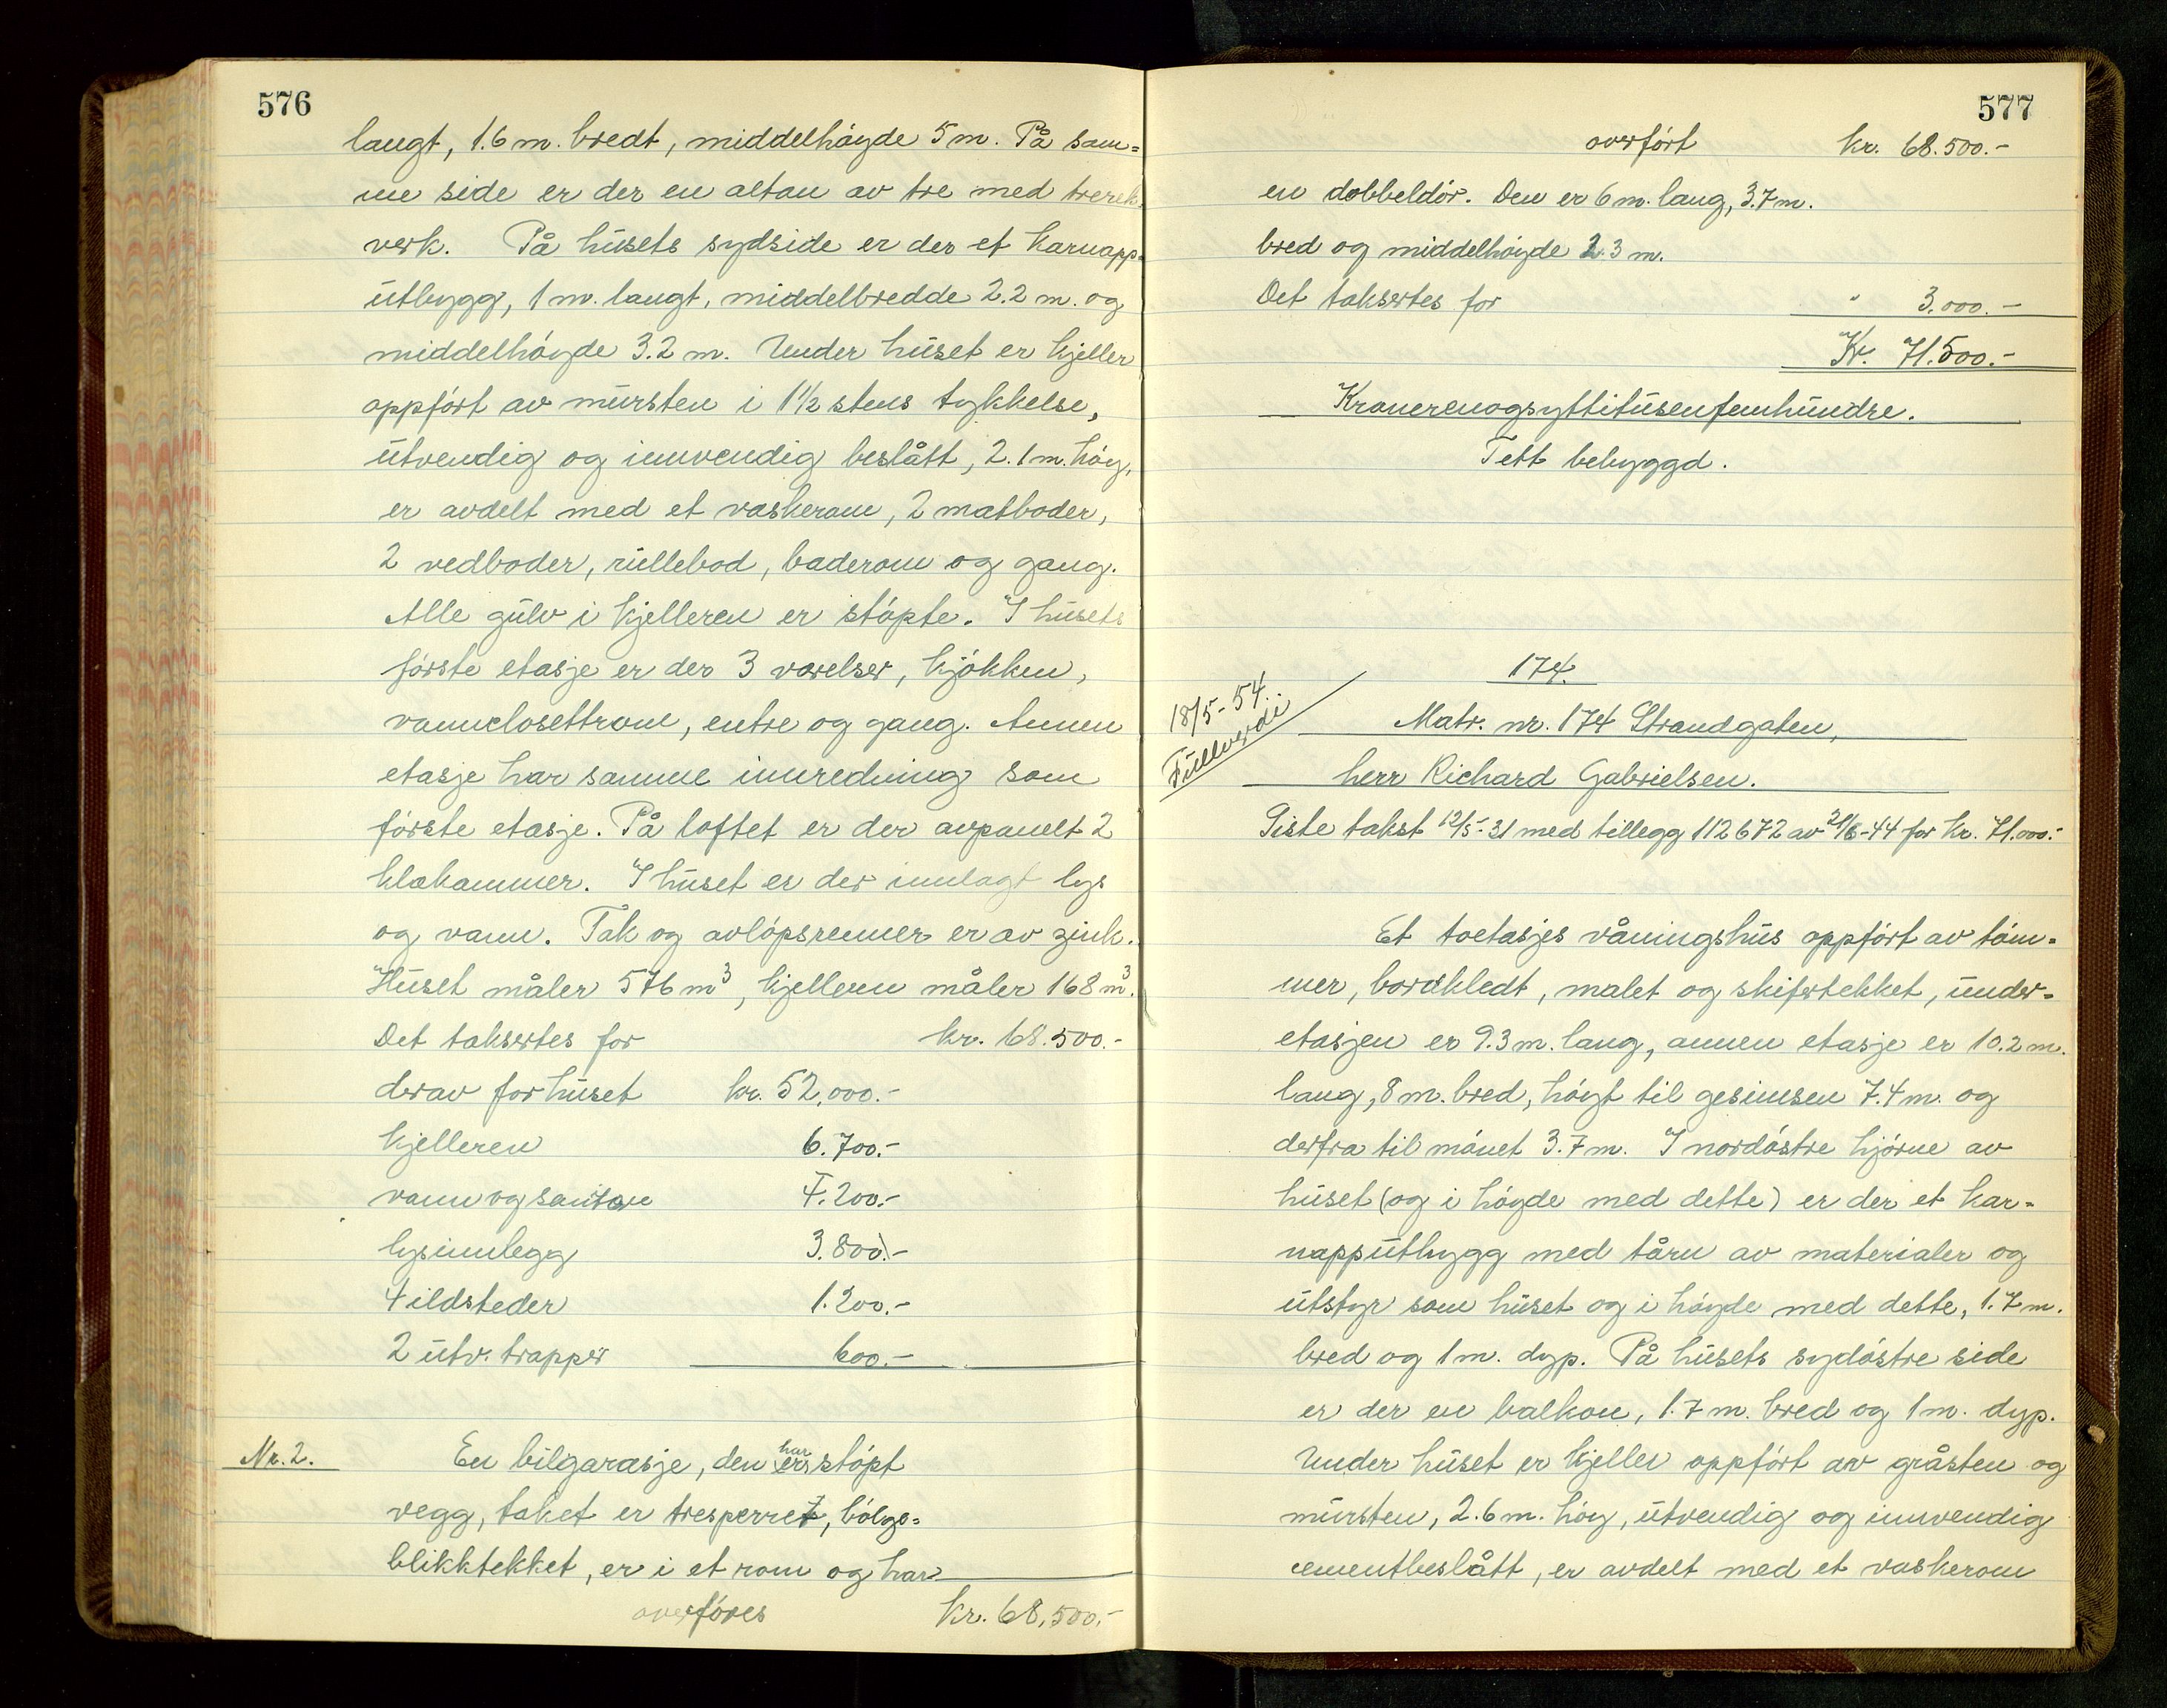 576
langt, 1.6 m. bredt, middelhöyde 5 m. På sam=
me side er der en altan av tre med trerek
verk. På husets sydside er der et karnapp=
utbygg, 1 m. langt, middelbredde 2.2 m. og
middelhöyde 3.2 m. Under huset er kjeller
oppfört av mursten i 1½ stens tykkelse,
utvendig og innvendig beslått, 2.1 m. höy,
er avdelt med et vaskerom, 2 matboder,
2 vedboder, rullebod, baderom og gang.
Alle gulv i kjelleren er stöpte. I husets
förste etasje er der 3 værelser, kjökken,
vannclosettrom, entre og gang. Annen
etasje har samme innredning som
förste etasje. På loftet er der avpanelt 2
klækammer. I huset er der innlagt lys
og vann. Tak og avlöpsrenner er av zink.
Huset måler 576 m³, kjelleren måler 168 m³.
Det takseres for kr. 68.500.-
derav for huset kr. 52.000.-
kjelleren 6.700.-
vann og sanitære 4.200.-
lysinnlegg 3.800.-
4 ildsteder 1.200.-
2 utv. trapper 600.-
Nr. 2. En bilgarasje, den har er stöpt
vegg, taket er tresperret, bölge=
blikktekket, er i et rom og har
overföres kr. 68.500.-
577
overfört kr. 68.500.-
en dobbeldör. Den er 6 m. lang, 3.7 m.
bred og middelhöyde 2.3 m.
Det takseres for " 3.000.-
Kr. 71.500.-
Kronerenogsyttitusenfemhundre.
Tett bebyggd.
174.
18/5-54
Fullverdi
Matr. nr. 174 Strandgaten,
herr Richard Gabrielsen.
Siste takst 12/5-31 med tillegg 112672 av 21/6-44 for kr. 71.000.-
Et toetasjes våningshus oppfört av töm=
mer, bordkledt, malet og skifertekket, under=
etasjen er 9.3 m. lang, annen etasje er 10.2 m.
lang, 8 m. bred, höyt til gesimsen 7.4 m. og
derfra til mönet 3.7 m. I nordöstre hjörne av
huset (og i höyde med dette) er der et kar=
napputbygg med tårn av materialer og
utstyr som huset og i höyde med dette, 1.7 m.
bred og 1 m. dyp. På husets sydöstre side
er der en balkon, 1.7 m. bred og 1 m. dyp.
Under huset er kjeller oppfört av gråsten og
mursten, 2.6 m. höy, utvendig og innvendig
cementbeslått, er avdelt med et vaskerom